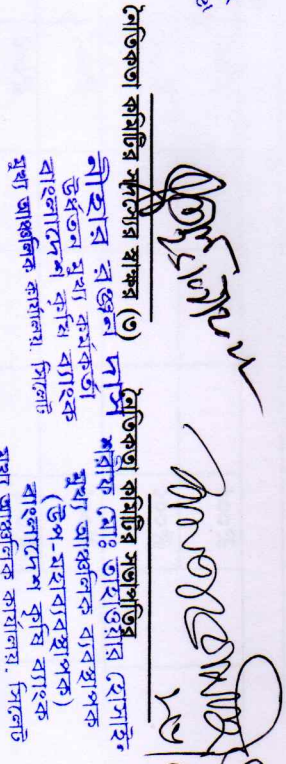 নৈতিকতা কমিটির সদস্যের স্বাক্ষর (৩)
নীহার রঞ্জন দাস
উর্ধ্বতন মুখ্য কর্মকর্তা
বাংলাদেশ কৃষি ব্যাংক
মুখ্য আঞ্চলিক কার্যালয়, সিলেট
নৈতিকতা কমিটির সভাপতির
শরীফ মোঃ
মুখ্য আঞ্চলিক ব্যবস্থাপক
(উপ-মহাব্যবস্থাপক)
বাংলাদেশ কৃষি ব্যাংক
মুখ্য আঞ্চলিক কার্যালয়, সিলেট